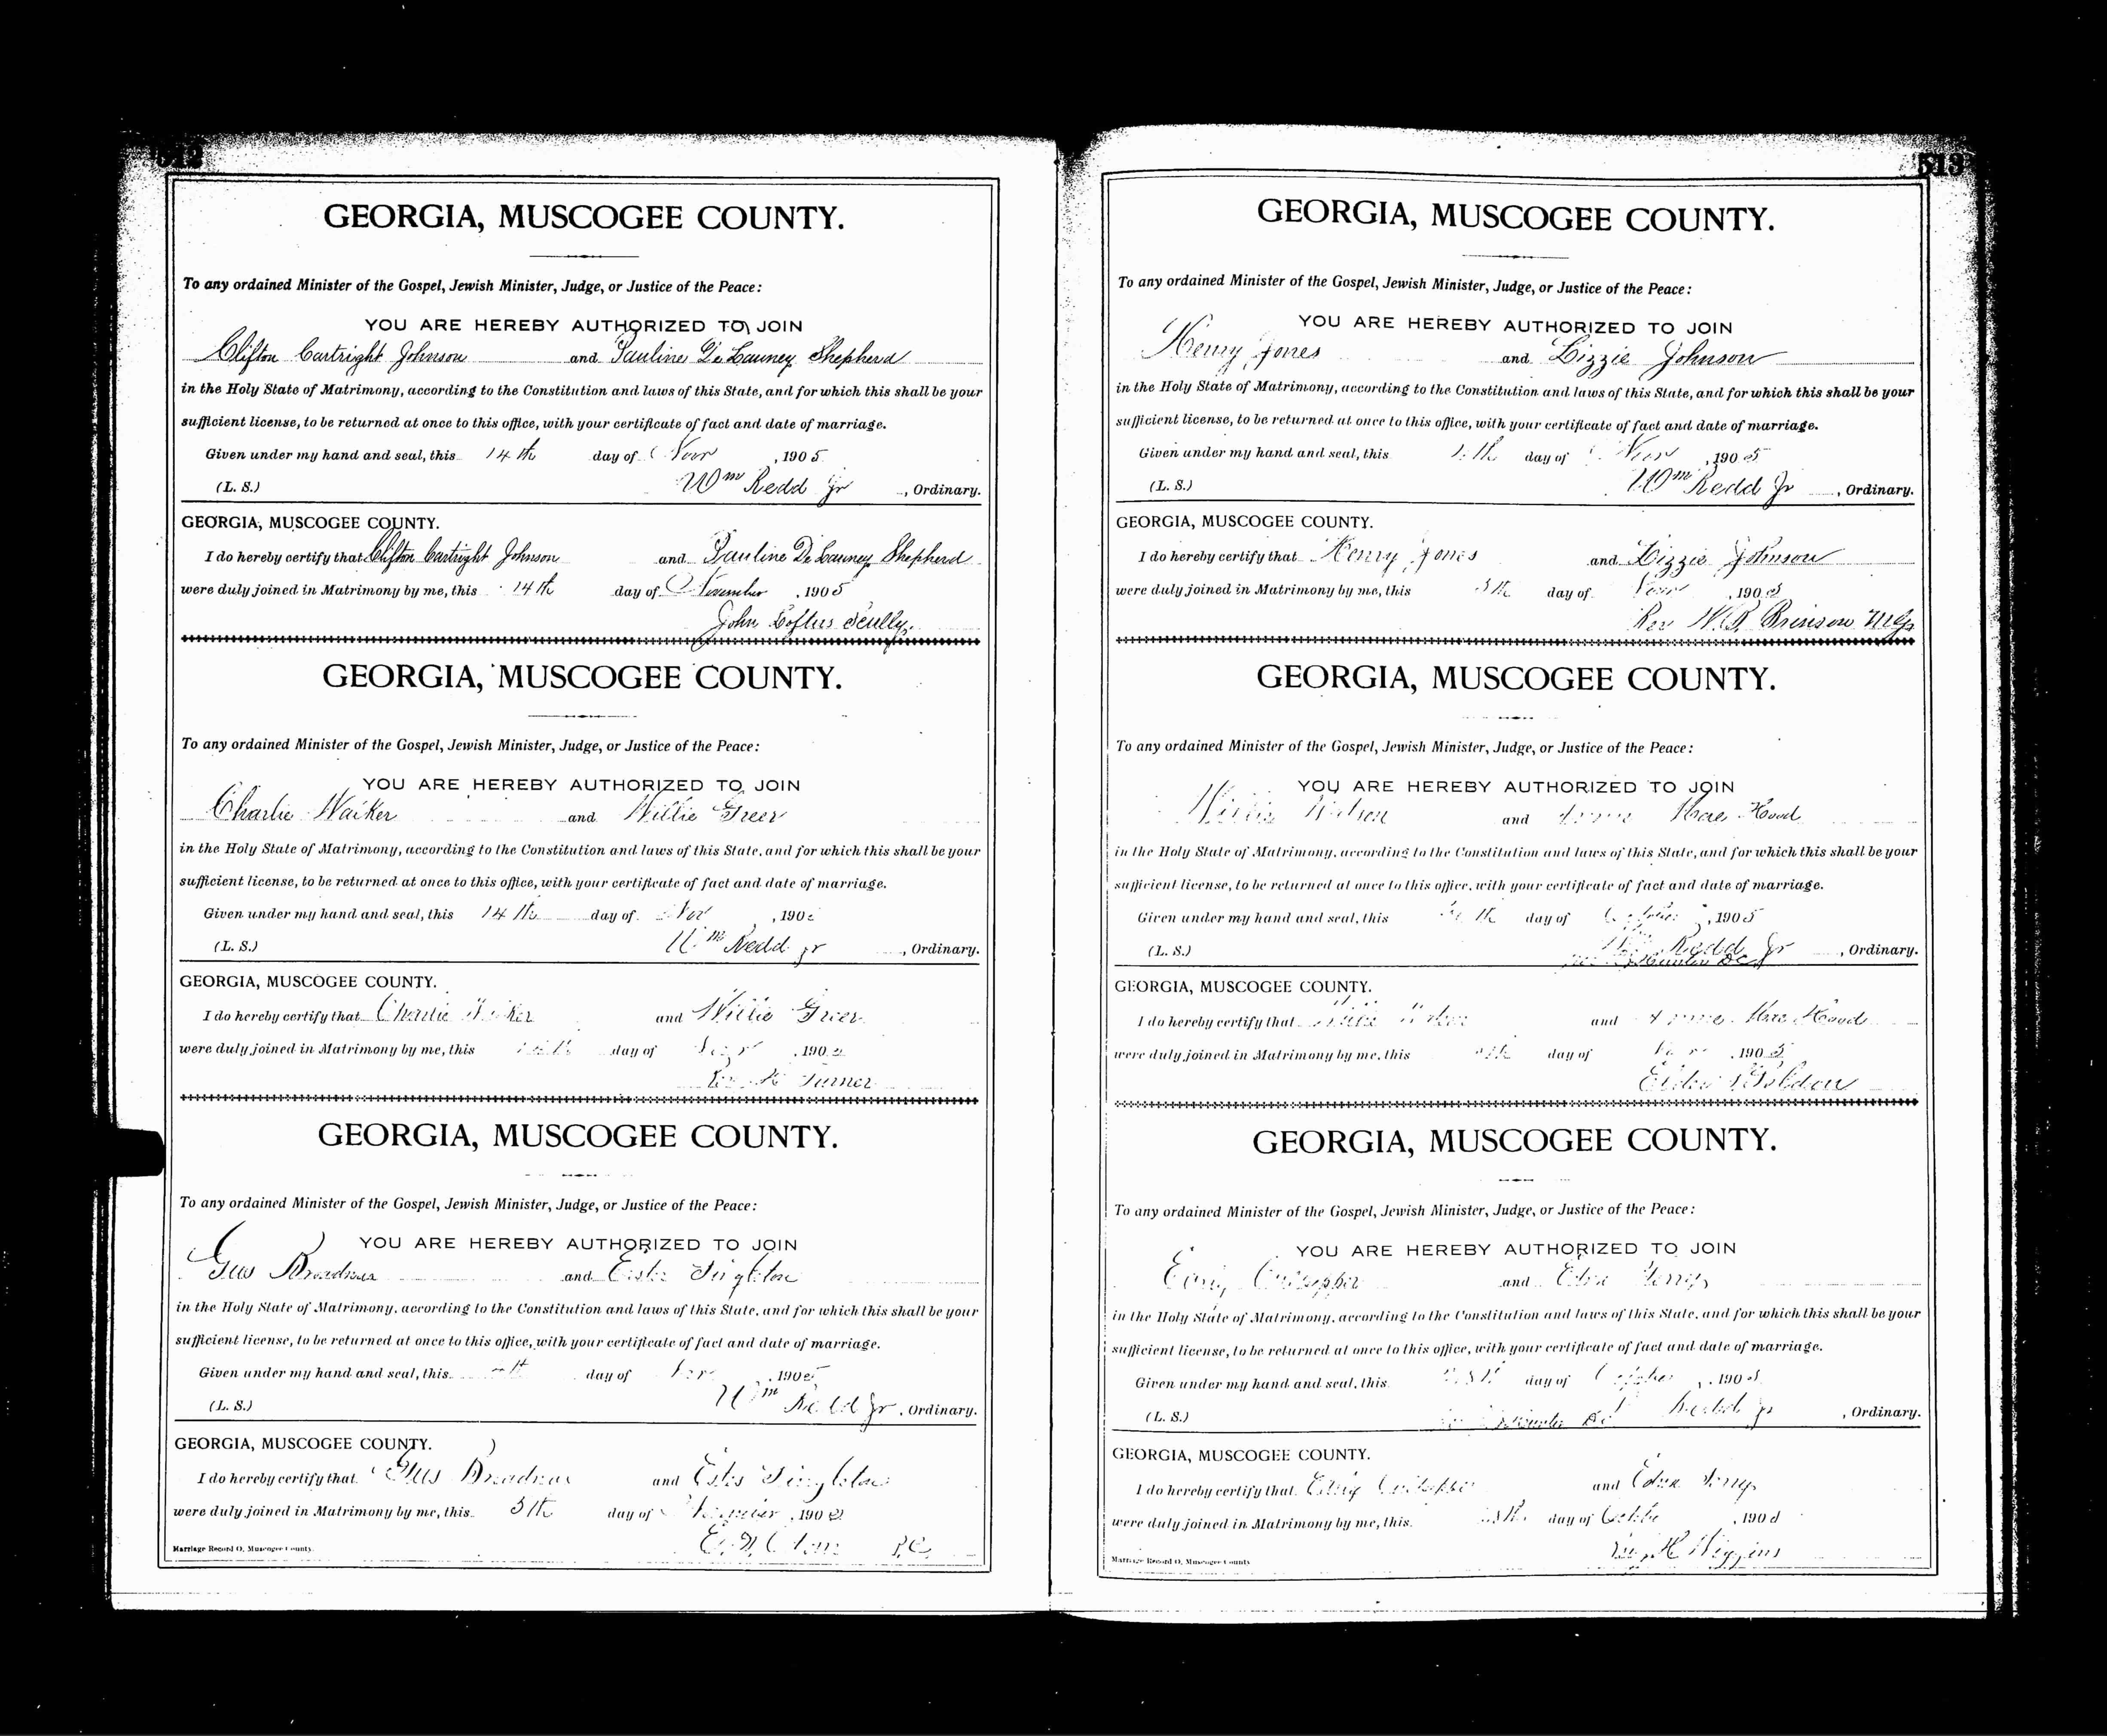 GEORGIA, MUSCOGEE COUNTY.
To any ordained Minister of the Gospel, Jewish Minister, Judge, or Justice of the Peace:
YOU ARE HEREBY AUTHORIZED TO JOIN
Clifton Cartright Johnson and Pauline De Launey Shepherd
in the Holy State of Matrimony, according to the Constitution and laws of this State, and for which this shall be your
sufficient license, to be returned at once to this office, with your certificate of fact and date of marriage.
Given under my hand and seal, this 14th day of Nov , 1905
(L. S.) Wm Redd Jr , Ordinary.
GEORGIA, MUSCOGEE COUNTY.
I do hereby certify that Clifton Cartright Johnson and Pauline De Launey Shepherd
were duly joined in Matrimony by me, this 14th day of November , 1905
John Loftus Scully.
GEORGIA, MUSCOGEE COUNTY.
To any ordained Minister of the Gospel, Jewish Minister, Judge, or Justice of the Peace:
YOU ARE HEREBY AUTHORIZED TO JOIN
Charlie Walker and Willie Greer
in the Holy State of Matrimony, according to the Constitution and laws of this State, and for which this shall be your
sufficient license, to be returned at once to this office, with your certificate of fact and date of marriage.
Given under my hand and seal, this 14th day of Nov , 190
(L. S.) Wm Redd Jr , Ordinary.
GEORGIA, MUSCOGEE COUNTY.
I do hereby certify that Charlie Walker and Willie Greer
were duly joined in Matrimony by me, this day of , 190
Turner
GEORGIA, MUSCOGEE COUNTY.
To any ordained Minister of the Gospel, Jewish Minister, Judge, or Justice of the Peace:
YOU ARE HEREBY AUTHORIZED TO JOIN
Gus Broadnax and Singleton
in the Holy State of Matrimony, according to the Constitution and laws of this State, and for which this shall be your
sufficient license, to be returned at once to this office, with your certificate of fact and date of marriage.
Given under my hand and seal, this day of , 1905
(L. S.) Wm Redd Jr , Ordinary.
GEORGIA, MUSCOGEE COUNTY.
I do hereby certify that Gus Broadnax and Singleton
were duly joined in Matrimony by me, this 5th day of , 190
Marriage Record O, Muscogee County.
513
GEORGIA, MUSCOGEE COUNTY.
To any ordained Minister of the Gospel, Jewish Minister, Judge, or Justice of the Peace:
YOU ARE HEREBY AUTHORIZED TO JOIN
Henry Jones and Lizzie Johnson
in the Holy State of Matrimony, according to the Constitution and laws of this State, and for which this shall be your
sufficient license, to be returned at once to this office, with your certificate of fact and date of marriage.
Given under my hand and seal, this day of Nov , 1905
(L. S.) Wm Redd Jr , Ordinary.
GEORGIA, MUSCOGEE COUNTY.
I do hereby certify that Henry Jones and Lizzie Johnson
were duly joined in Matrimony by me, this day of Nov , 1905
Rev W. R. Brinson M.G.
GEORGIA, MUSCOGEE COUNTY.
To any ordained Minister of the Gospel, Jewish Minister, Judge, or Justice of the Peace:
YOU ARE HEREBY AUTHORIZED TO JOIN
Willie and Mae Hood
in the Holy State of Matrimony, according to the Constitution and laws of this State, and for which this shall be your
sufficient license, to be returned at once to this office, with your certificate of fact and date of marriage.
Given under my hand and seal, this day of October , 1905
(L. S.) Redd Jr , Ordinary.
GEORGIA, MUSCOGEE COUNTY.
I do hereby certify that Willie and Mae Hood
were duly joined in Matrimony by me, this day of , 1905
GEORGIA, MUSCOGEE COUNTY.
To any ordained Minister of the Gospel, Jewish Minister, Judge, or Justice of the Peace:
YOU ARE HEREBY AUTHORIZED TO JOIN
Culpepper and Edna Terry
in the Holy State of Matrimony, according to the Constitution and laws of this State, and for which this shall be your
sufficient license, to be returned at once to this office, with your certificate of fact and date of marriage.
Given under my hand and seal, this day of October , 190
(L. S.) Redd Jr , Ordinary.
GEORGIA, MUSCOGEE COUNTY.
I do hereby certify that Culpepper and Edna Terry
were duly joined in Matrimony by me, this day of , 190
H Wiggins
Marriage Record O, Muscogee County